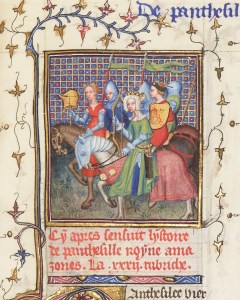 De panthesil
Cy apres sensuit lystoire
de panthesille royne ama
zones. La .xxxij. rubriche.
Anthesilee vier